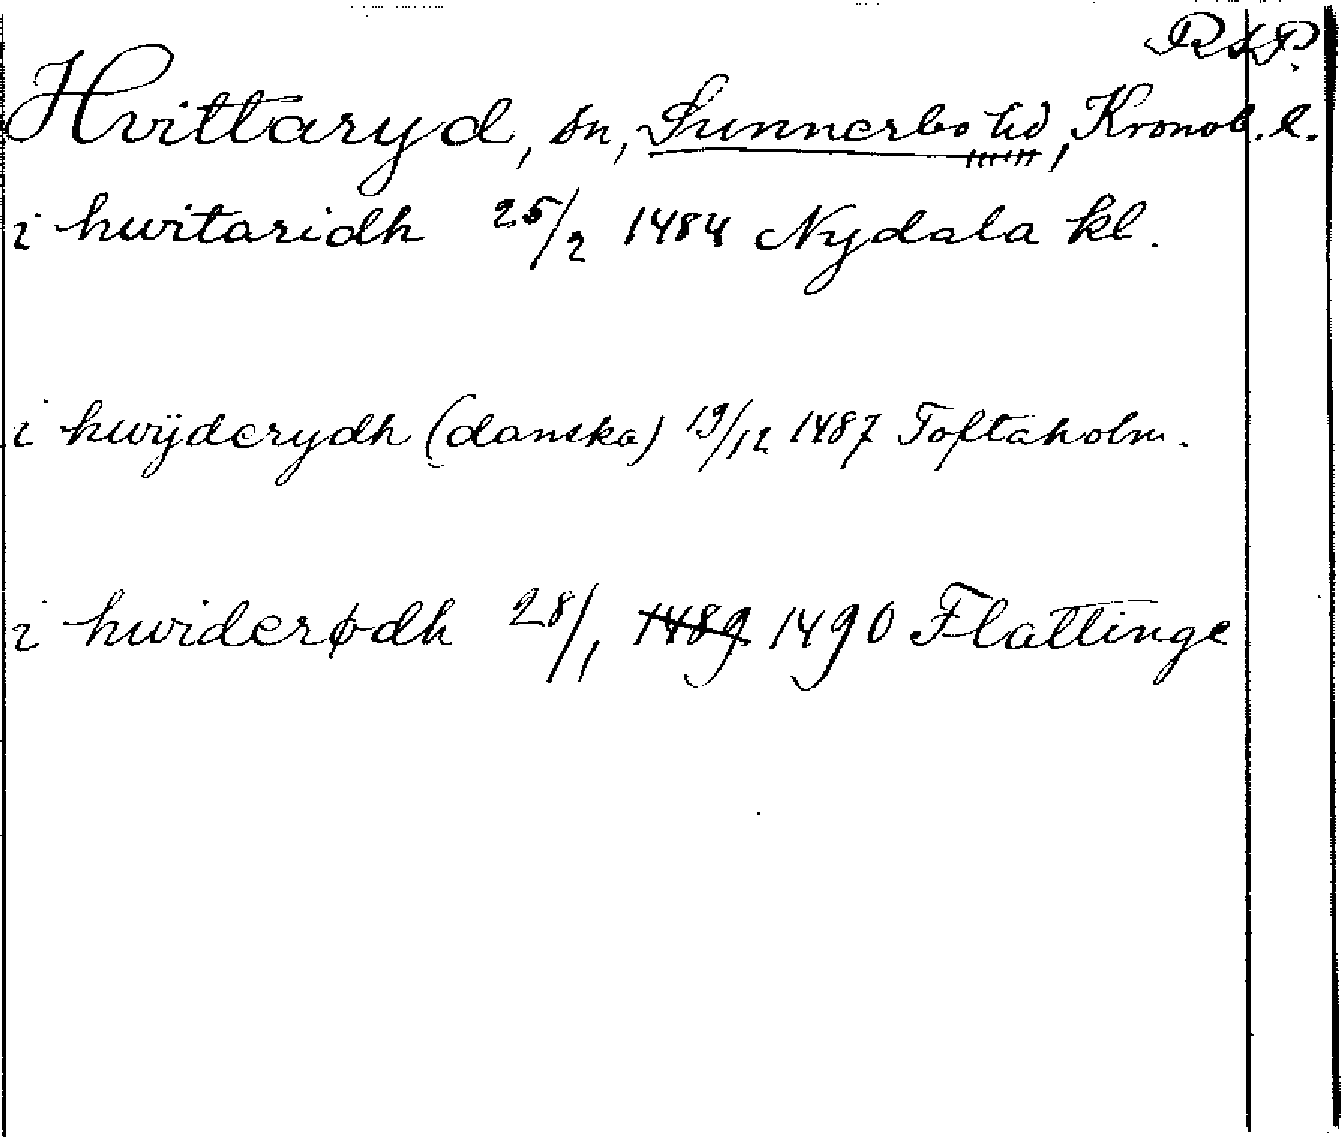 RAP.
Hvittaryd, sn, Sunnerbo hd, Kronob. l.
i hwitaridh 25/2 1484 Nydala kl.
i hwÿderydh (danska) 19/12 1487 Toftaholm.
i hwiderødh 28/1 1489 1490 Flattinge